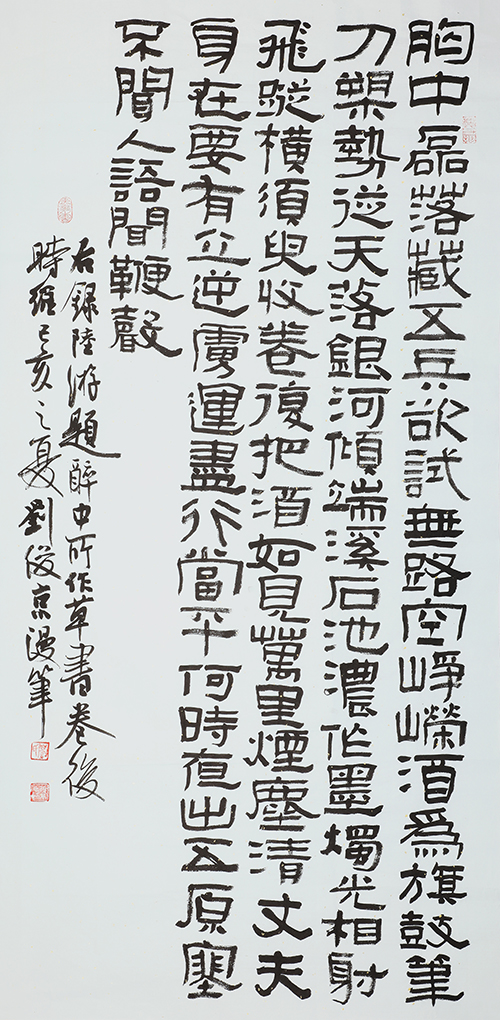 胸中磊落藏五兵欲試無路空崢嶸酒爲旗鼓筆
刀槊勢從天落銀河傾端溪石池濃作墨燭光相射
飛蹤橫須臾收卷復把酒如見萬里煙塵清丈夫
身在要有立逆虜運盡行當平何時夜出五原塞
不聞人語聞鞭聲
右錄陸游題醉中所作草書卷後
時維己亥之夏劉俊京漫筆